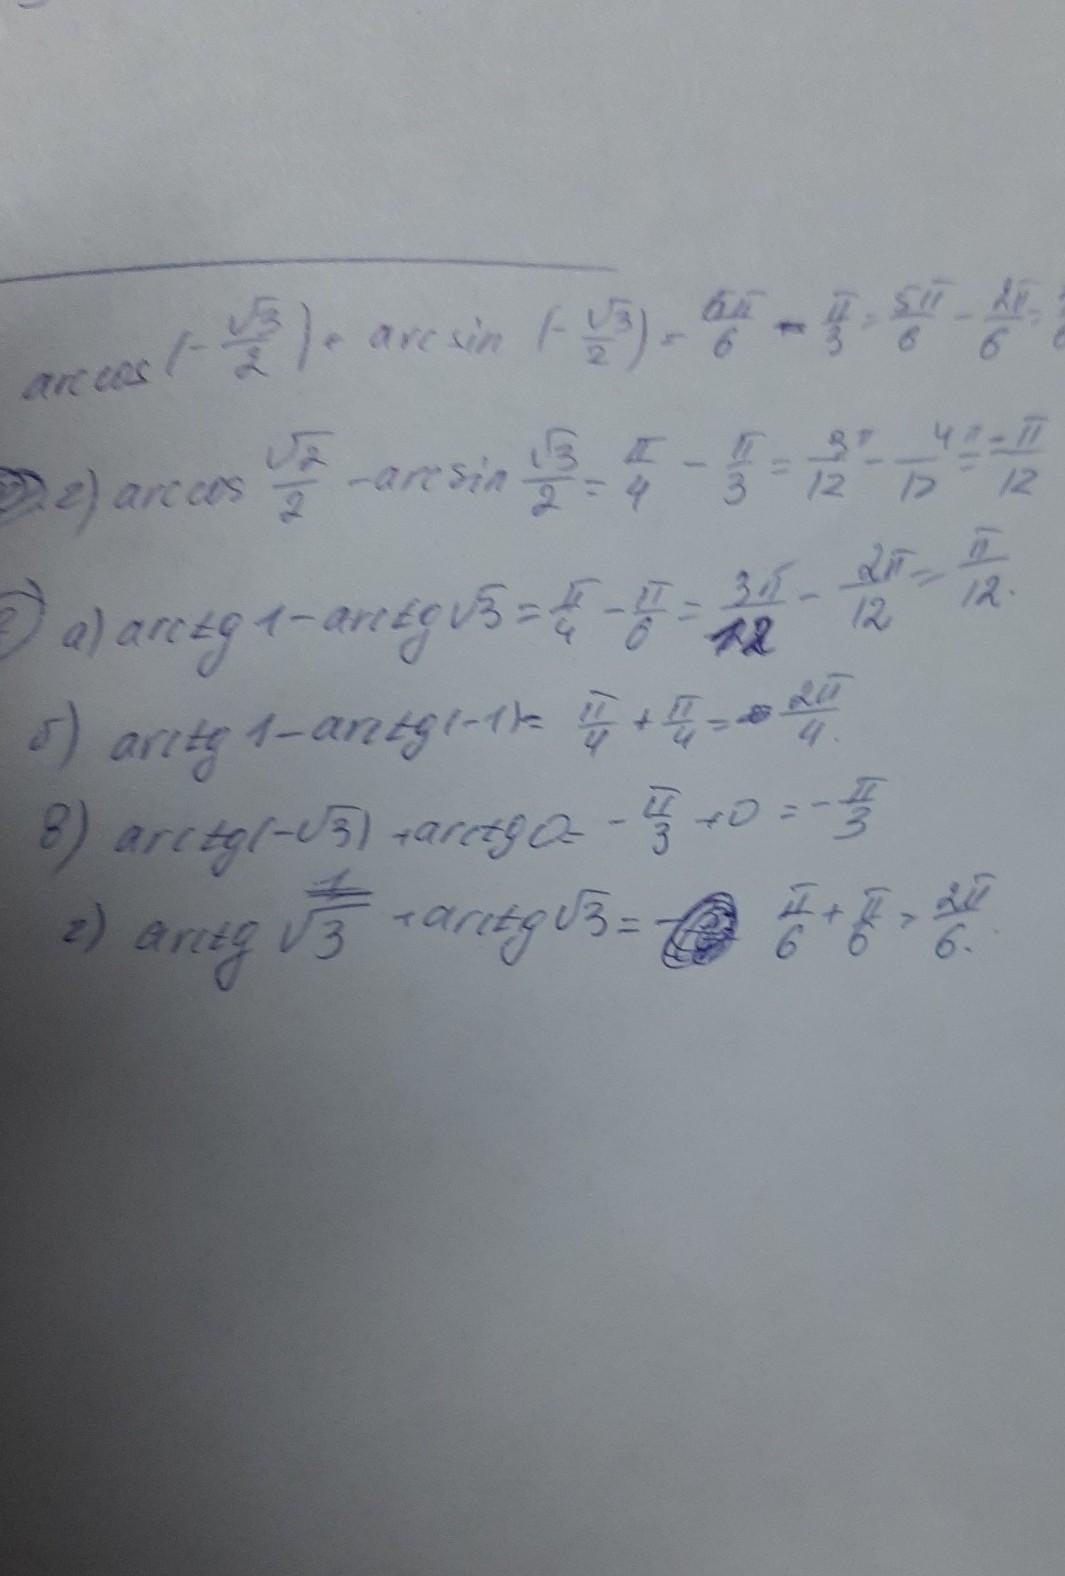 arccos (-√3/2) + arcsin (-√3/2) = 5π/6 - π/3 = 5π/6 - 2π/6 =
г) arccos √2/2 - arcsin √3/2 = π/4 - π/3 = 3π/12 - 4π/12 = -π/12
а) arctg 1 - arctg √3 = π/4 - π/6 = 3π/12 - 2π/12 = π/12.
б) arctg 1 - arctg (-1) = π/4 + π/4 = 2π/4.
в) arctg (-√3) + arctg 0 = -π/3 + 0 = -π/3
г) arctg 1/√3 + arctg √3 = π/6 + π/6 = 2π/6.